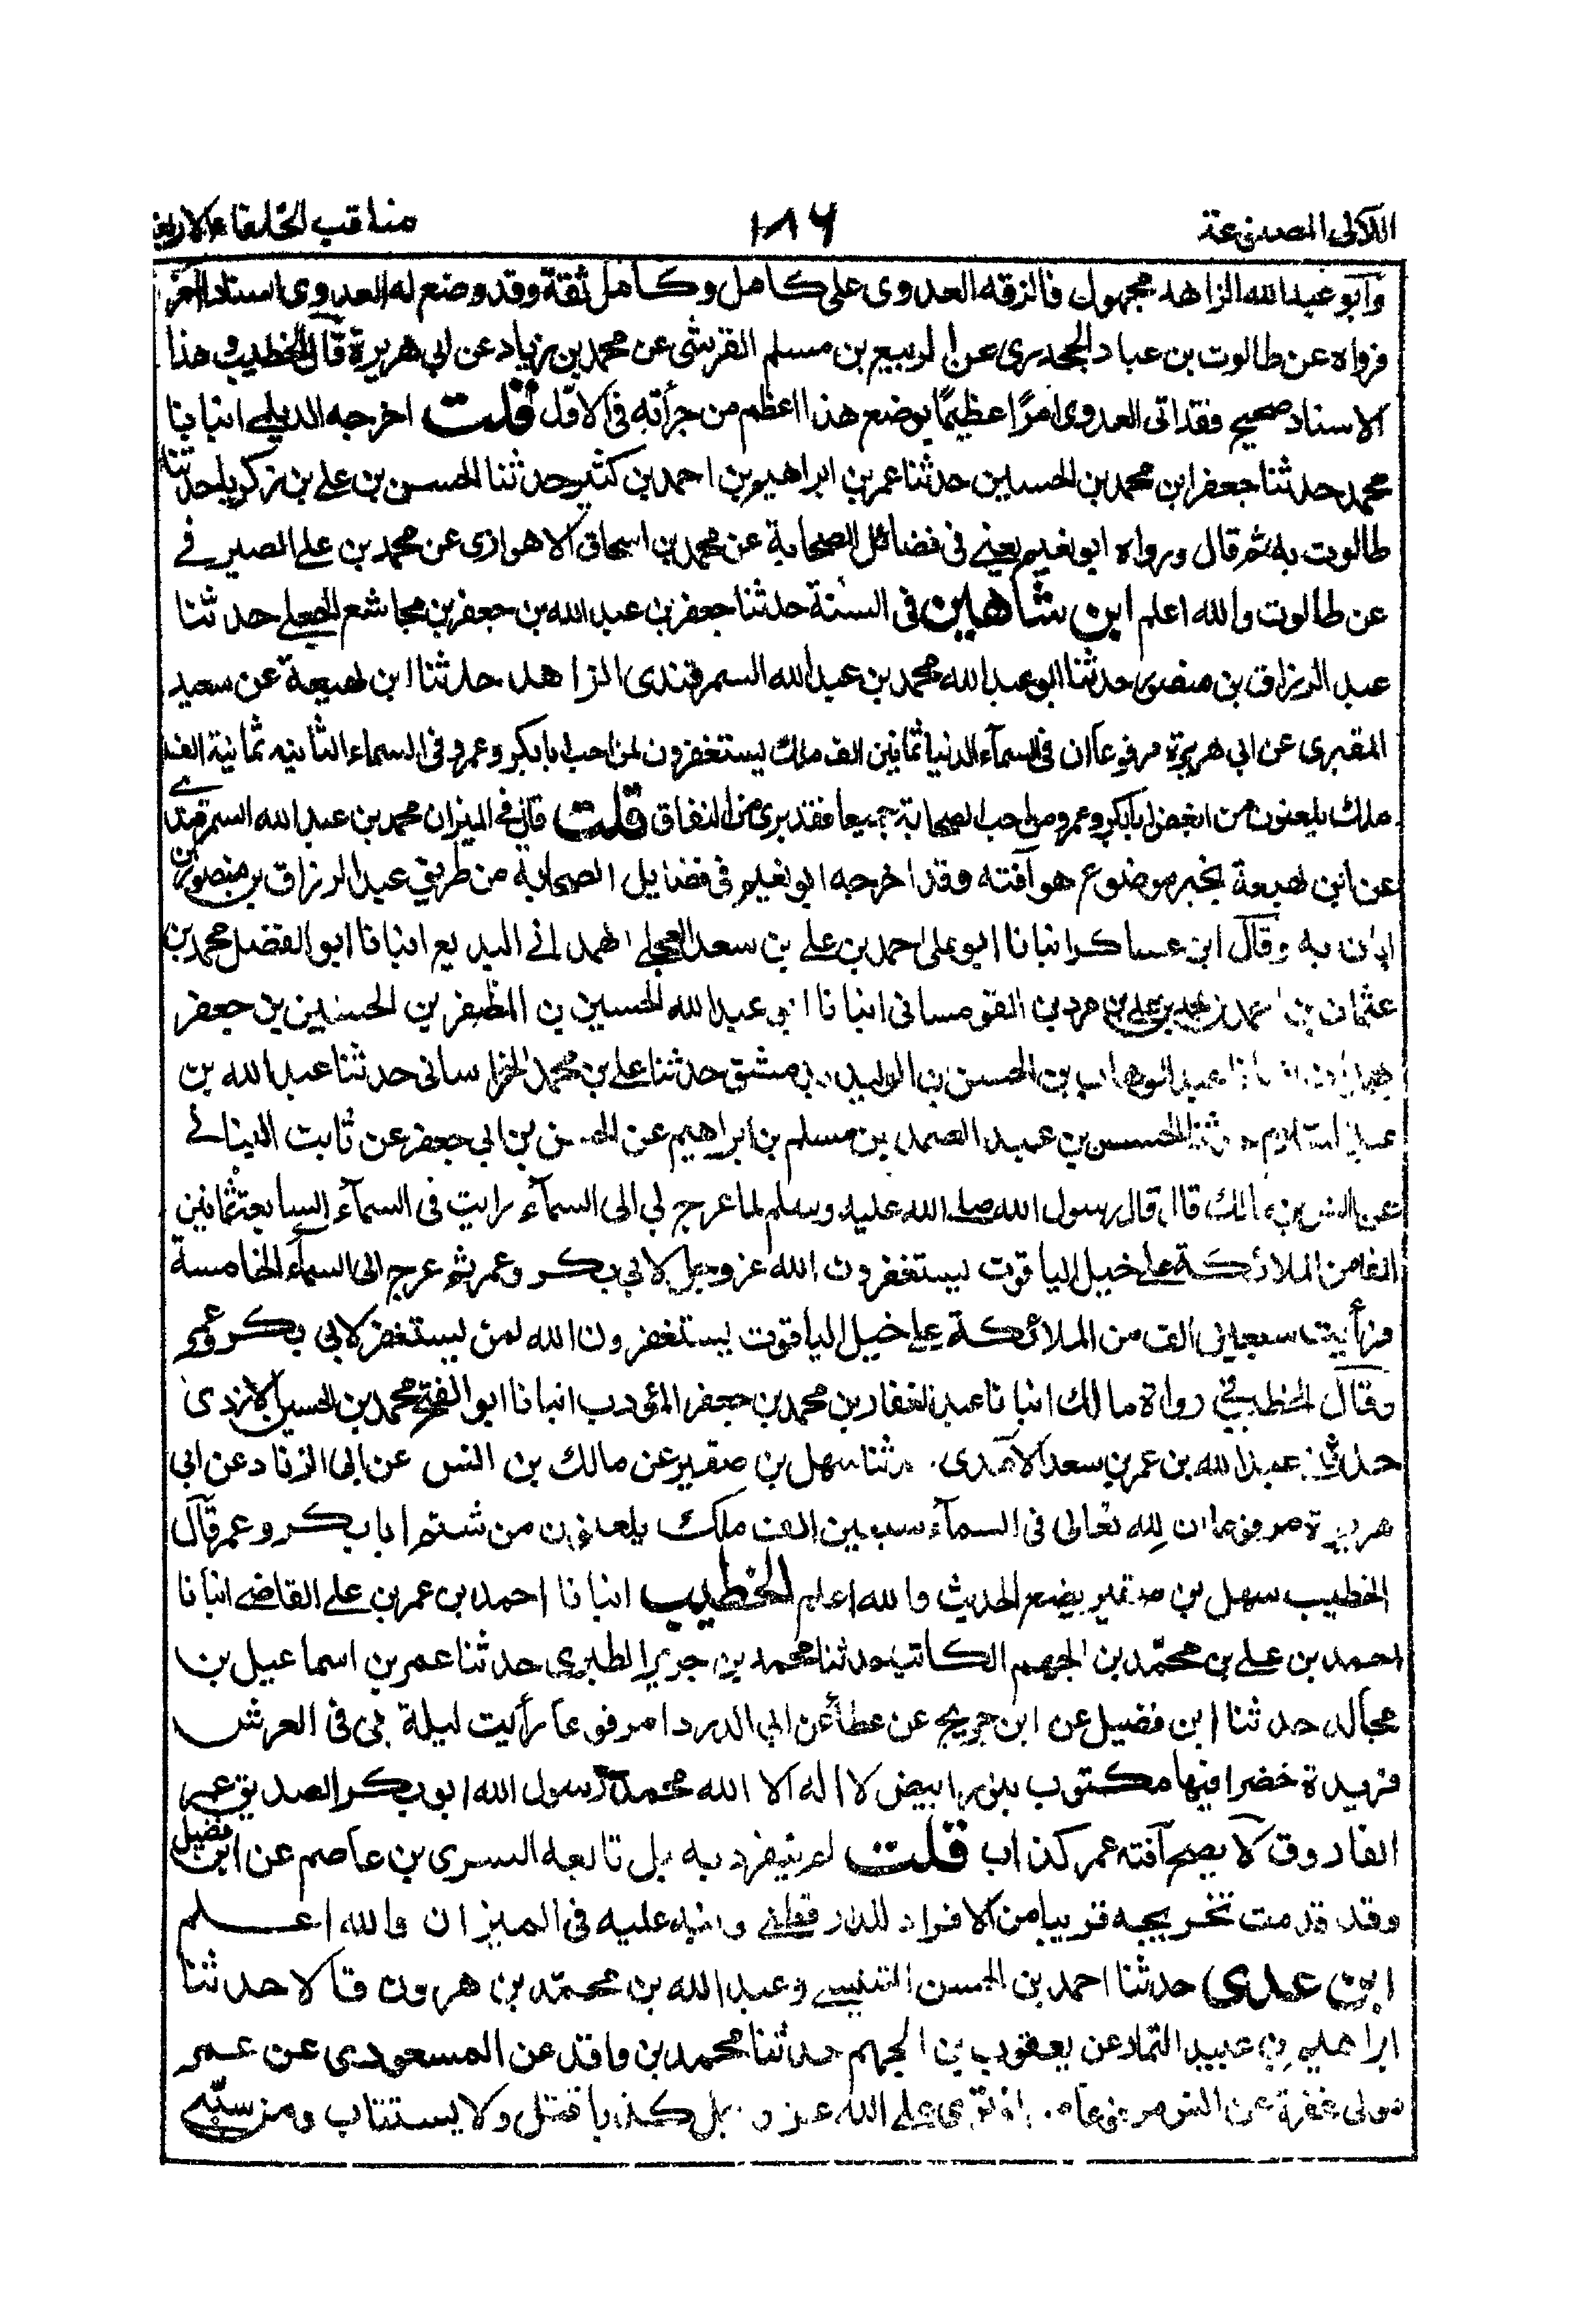 اللآلى المصنوعة ١٨٦ مناقب الخلفاء الاربعة
وابو عبد الله الزاهد مجهول فالزقه العدوى على كامل وكامل ثقة وقد وضع له العدوى اسنادا آخر
فرواه عن طالوت بن عباد الجحدرى عن الربيع بن مسلم القرشى عن محمد بن زياد عن ابى هريرة قال الخطيب وهذا
الاسناد صحيح فقد اتى العدوى امرًا عظيمًا بوضع هذا اعظم من جرأته فى الاول قلت اخرجه الديلمى انبانا
محمد حدثنا جعفر ابن محمد بن الحسين حدثنا عمر بن ابراهيم بن احمد بن كثير حدثنا الحسن بن على بن زكريا حدثنا
طالوت به ثم قال ورواه ابو نعيم يعنى فى فضائل الصحابة عن محمد بن اسحاق الاهوازى عن محمد بن على الصيرفى
عن طالوت والله اعلم ابن شاهين فى السنة حدثنا جعفر بن عبد الله بن جعفر بن مجاشع حدثنا
عبد الرزاق بن منصور حدثنا ابو عبد الله محمد بن عبد الله السمرقندى الزاهد حدثنا ابن لهيعة عن سعيد
المقبرى عن ابى هريرة مرفوعا ان فى السمآء الدنيا ثمانين الف ملك يستغفرون لمن احب ابا بكر وعمر وفى السماء الثانيه ثمانية الف
ملك يلعنون من ابغض ابا بكر وعمر ومن احب الصحابة جميعا فقد برى من النفاق قلت قال فى الميزان محمد بن عبد الله السمرقندى
عن ابن لهيعة بخبر موضوع هو آفته وقد اخرجه ابو نعيم فى فضايل الصحابة من طريق عبد الرزاق بن منصور بن
ابان به وقال ابن عساكر انبانا ابو على احمد بن على بن سعد العجلى الهمدانى البديع انبانا ابو الفضل محمد بن
عثمان بن احمد بن محمد بن على بن مردين القومسانى انبانا ابى عبد الله الحسين بن المظفر بن الحسين بن جعفر
عبد الوهاب بن الحسن بن الوليد بدمشق حدثنا على بن محمد الخراسانى حدثنا عبد الله بن
عبد السلام حدثنا الحسن بن عبد الصمد بن مسلم بن ابراهيم عن الحسن بن ابى جعفر عن ثابت البنانى
عن انس بن مالك قال قال رسول الله صلى الله عليه وسلم لما عرج بى الى السمآء رايت فى السمآء السابعة ثمانين
الفا من الملائكة على خيل الياقوت يستغفرون الله عز وجل لابى بكر وعمر ثم عرج الى السمآء الخامسة
فرأيت سبعين الف من الملائكة على خيل الياقوت يستغفرون الله لمن يستغفر لابى بكر وعمر
وقال الخطيب فى رواة مالك انبانا عبد الغفار بن محمد بن جعفر المؤدب انبانا ابو الفتح محمد بن الحسين الازدى
حدثنا عبد الله بن عمر بن سعد الآمدى حدثنا سهل بن صقير عن مالك بن انس عن ابى الزناد عن ابى
هريرة مرفوعا ان لله تعالى فى السمآء سبعين الف ملك يلعنون من شتم ابا بكر وعمر قال
الخطيب سهل بن صقير يضع الحديث والله اعلم الخطيب انبانا احمد بن عمر بن على القاضى انبانا
احمد بن على بن محمّد بن الجهم الكاتب حدثنا محمد بن جرير الطبرى حدثنا عمر بن اسماعيل بن
مجالد حدثنا ابن فضيل عن ابن جريج عن عطأ عن ابى الدردا مرفوعا رأيت ليلة بى فى العرش
فريدة خضرا فيها مكتوب بنور ابيض لا اله الا الله محمد رسول الله ابو بكر الصديق عمر
الفاروق لا يصح آفته عمر كذاب قلت لم ينفرد به بل تابعه السرى بن عاصم عن ابن فضيل
وقد قدمت تخريجه قريبا من الافراد للدارقطنى وانبه عليه فى الميزان والله اعلم
ابن عدى حدثنا احمد بن الحسن التنيسى وعبد الله بن محمّد بن هرون قالا حدثنا
ابراهيم بن عبيد التمار عن يعقوب بن الجهم حدثنا محمد بن واقد عن المسعودى عن عمر
مولى غفرة عن انس مرفوعا من افترى على الله عز وجل كذبا قتل ولا يستتاب ومن سبنى